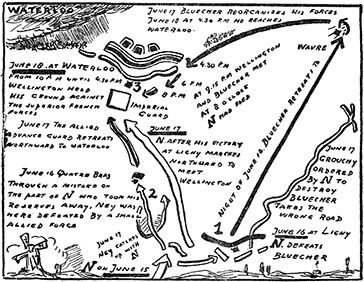 WATERLOO
JUNE 17 BLUECHER REORGANIZES HIS FORCES
JUNE 18 AT 4.30 P.M. HE REACHES
WATERLOO
WAVRE
JUNE 18 AT WATERLOO
FROM 10 A.M UNTIL 4.30 P.M.
WELLINGTON HELD
HIS GROUND AGAINST
THE SUPERIOR FRENCH
FORCES
4.30 P.M
6 P.M
8 P.M
3
IMPERIAL
GUARD
AT 9.15 P.M WELLINGTON
AND BLUECHER MET
AT 8 O'CLOCK
N HAD FLED
JUNE 17 THE ALLIED
ADVANCE GUARD RETREATS
NORTHWARD TO WATERLOO
JUNE 17
N AFTER HIS VICTORY
AT LIGNY MARCHES
NORTHWARD TO
MEET
WELLINGTON
NIGHT OF JUNE 16 BLUECHER RETREATS TO
JUNE 17
GROUCHY
ORDERED
BY N TO
DESTROY
BLUECHER
TAKES THE
WRONG ROAD
JUNE 16 QUATRE BRAS
THROUGH A MISTAKE ON
THE PART OF N WHO TOOK HIS
RESERVES AWAY, NEY WAS
HERE DEFEATED BY A SMALL
ALLIED FORCE
2
JUNE 17
NEY CATCHES
UP WITH
N
1
JUNE 16 AT LIGNY
N DEFEATS
BLUECHER
N ON JUNE 15